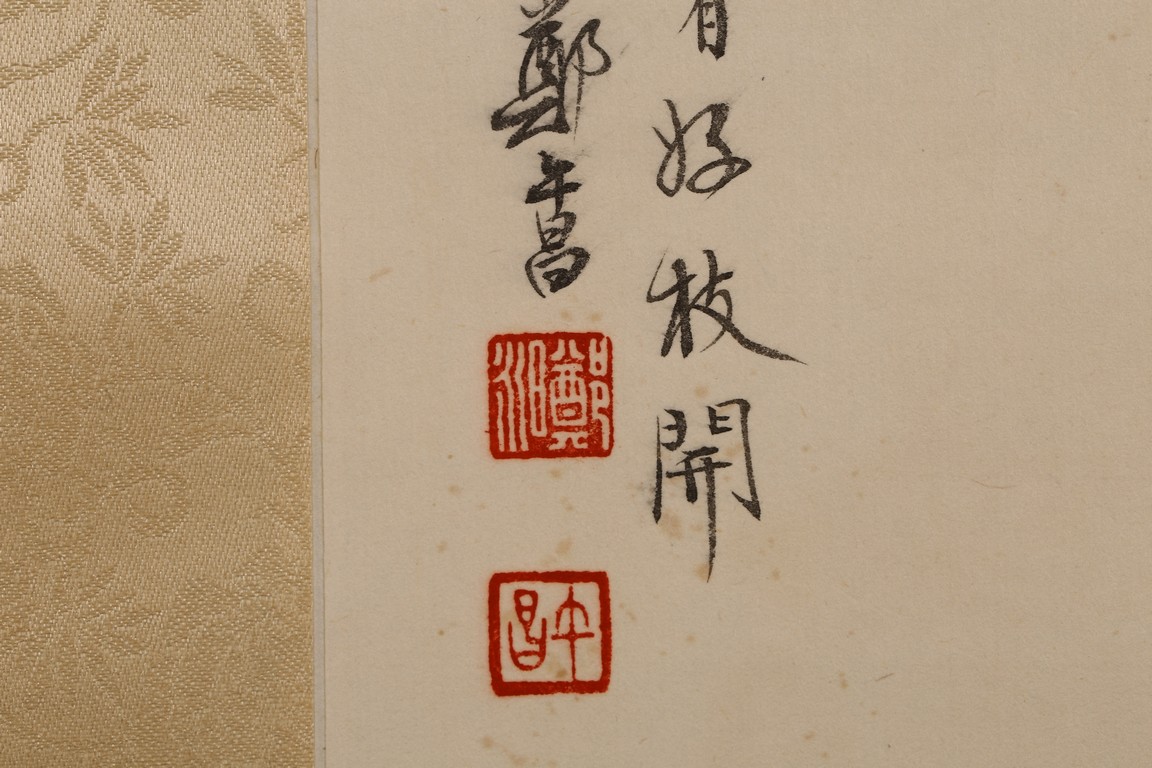 有好枝開
鄭午昌
鄭昶
午昌